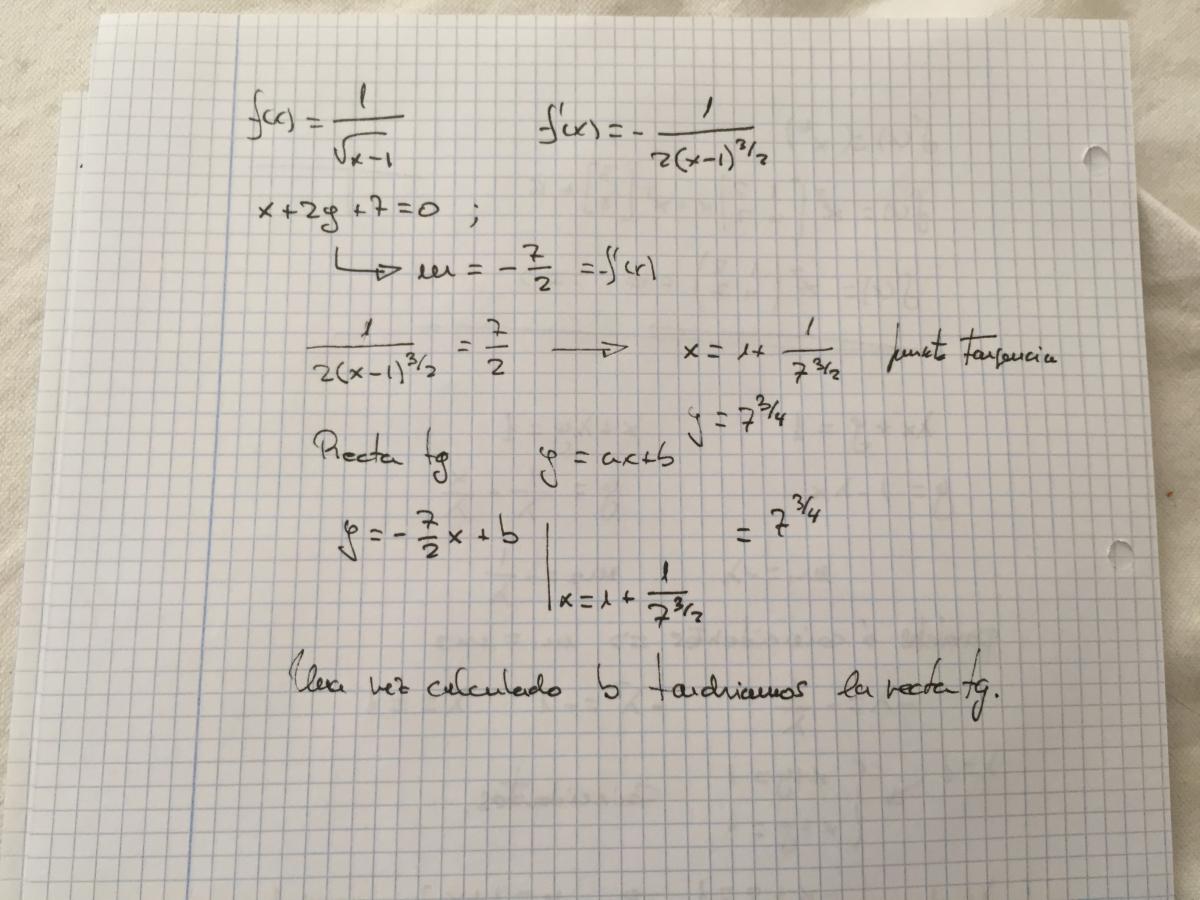 f(x) = 1/√x-1    f'(x) = - 1/2(x-1)^3/2
x + 2y + 7 = 0 ;
↳ m = - 7/2 = f'(x)
1/2(x-1)^3/2 = 7/2 → x = 1 + 1/7^3/2 punto Tangencia
y = 7^3/4
Recta tg    y = ax+b
y = - 7/2 x + b | x = 1 + 1/7^3/2 = 7^3/4
Una vez calculado b tendriamos la recta tg.